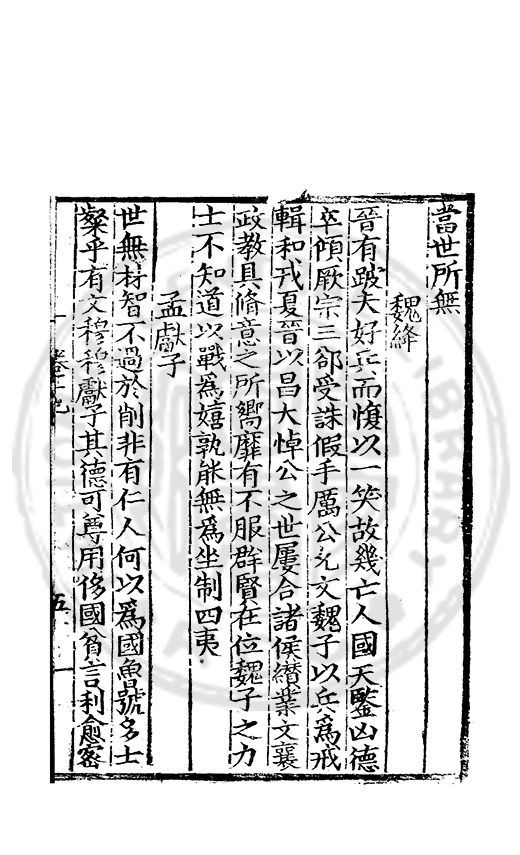 當世所無
魏絳
晉有跛夫好兵而愎以一笑故幾亡人國天鑒凶德
卒傾厥宗三郤受誅假手厲公允文魏子以兵為戒
輯和戎夏晉以昌大悼公之世屢合諸侯纘業文襄
政教具脩意之所嚮靡有不服群賢在位魏子之力
士不知道以戰為嬉孰能無為坐制四夷
孟獻子
世無材智不過於削非有仁人何以為國魯號多士
粲乎有文穆穆獻子其德可尊用侈國貧言利愈密
五